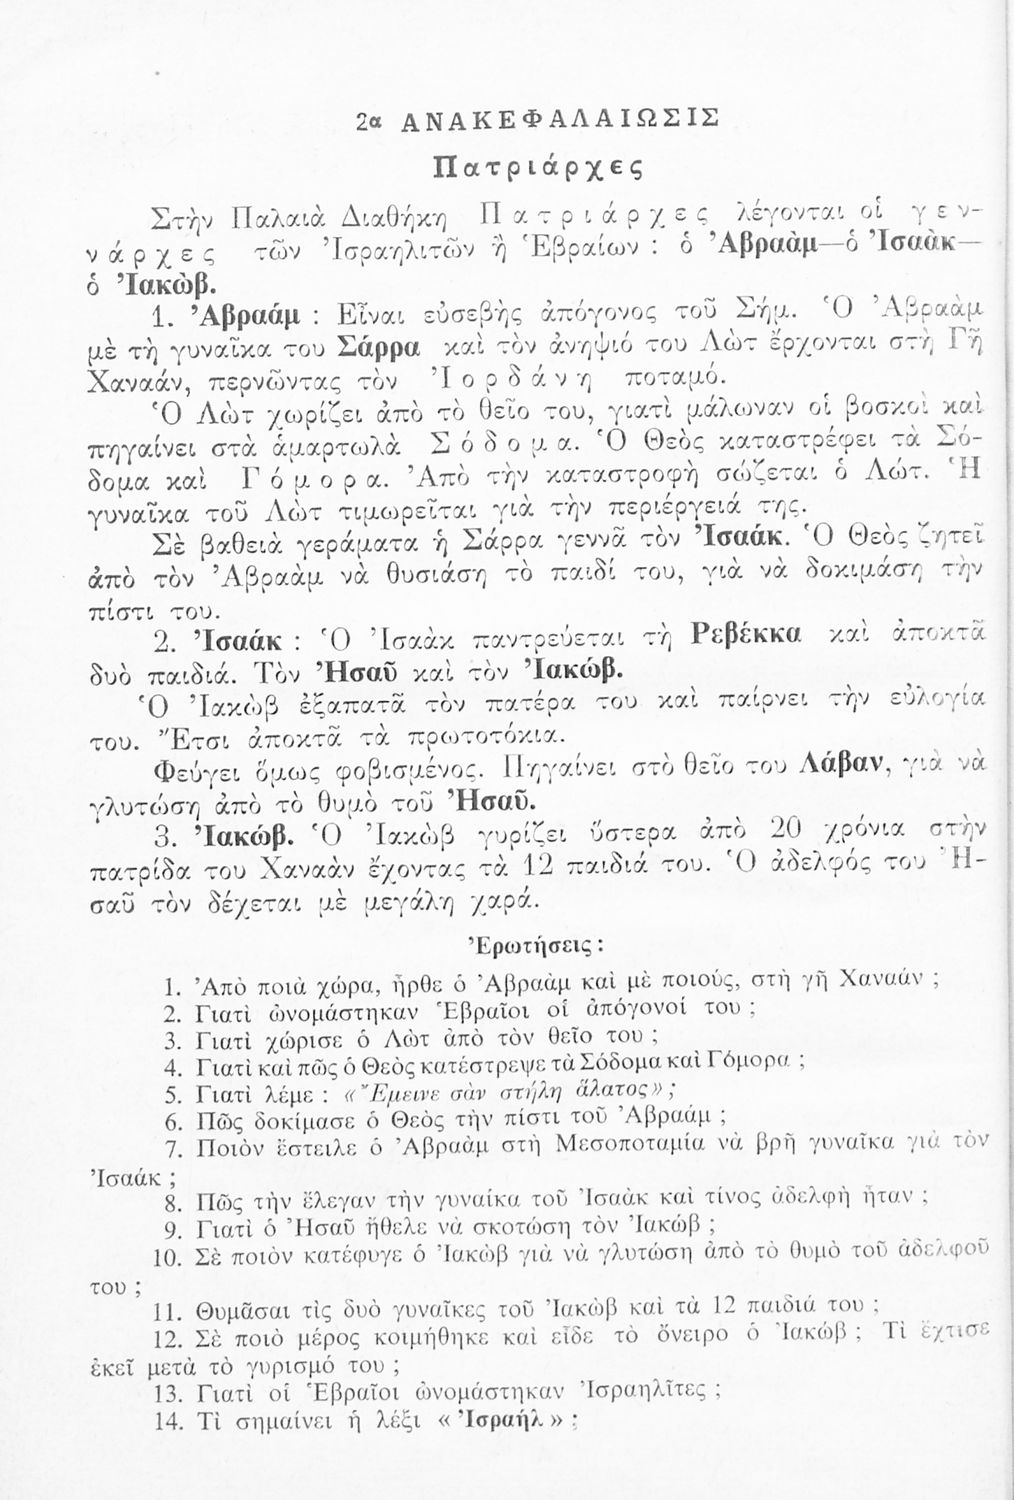 2α ΑΝΑΚΕΦΑΛΑΙΩΣΙΣ
Πατριάρχες
Στὴν Παλαιὰ Διαθήκη Πατριάρχες λέγονται οἱ γεν-
νάρχες τῶν Ἰσραηλιτῶν ἢ Ἑβραίων : ὁ Ἀβραὰμ—ὁ Ἰσαὰκ—
ὁ Ἰακὼβ.
1. Ἀβραάμ : Εἶναι εὐσεβὴς ἀπόγονος τοῦ Σήμ. Ὁ Ἀβραὰμ
μὲ τὴ γυναῖκα του Σάρρα καὶ τὸν ἀνηψιό του Λὼτ ἔρχονται στὴ Γῆ
Χαναάν, περνῶντας τὸν Ἰορδάνη ποταμό.
Ὁ Λὼτ χωρίζει ἀπὸ τὸ θεῖο του, γιατὶ μάλωναν οἱ βοσκοὶ καὶ
πηγαίνει στὰ ἁμαρτωλὰ Σόδομα. Ὁ Θεὸς καταστρέφει τὰ Σό-
δομα καὶ Γόμορα. Ἀπὸ τὴν καταστροφὴ σώζεται ὁ Λώτ. Ἡ
γυναῖκα τοῦ Λὼτ τιμωρεῖται γιὰ τὴν περιέργειά της.
Σὲ βαθειὰ γεράματα ἡ Σάρρα γεννᾶ τὸν Ἰσαάκ. Ὁ Θεὸς ζητεῖ
ἀπὸ τὸν Ἀβραὰμ νὰ θυσιάση τὸ παιδί του, γιὰ νὰ δοκιμάση τὴν
πίστι του.
2. Ἰσαάκ : Ὁ Ἰσαὰκ παντρεύεται τὴ Ρεβέκκα καὶ ἀποκτᾶ
δυὸ παιδιά. Τὸν Ἠσαῦ καὶ τὸν Ἰακώβ.
Ὁ Ἰακὼβ ἐξαπατᾶ τὸν πατέρα του καὶ παίρνει τὴν εὐλογία
του. Ἔτσι ἀποκτᾶ τὰ πρωτοτόκια.
Φεύγει ὅμως φοβισμένος. Πηγαίνει στὸ θεῖο του Λάβαν, γιὰ νὰ
γλυτώση ἀπὸ τὸ θυμὸ τοῦ Ἠσαῦ.
3. Ἰακώβ. Ὁ Ἰακὼβ γυρίζει ὕστερα ἀπὸ 20 χρόνια στὴν
πατρίδα του Χαναὰν ἔχοντας τὰ 12 παιδιά του. Ὁ ἀδελφός του Ἠ-
σαῦ τὸν δέχεται μὲ μεγάλη χαρά.
Ἐρωτήσεις :
1. Ἀπὸ ποιὰ χώρα, ἦρθε ὁ Ἀβραὰμ καὶ μὲ ποιούς, στὴ γῆ Χαναάν ;
2. Γιατὶ ὠνομάστηκαν Ἑβραῖοι οἱ ἀπόγονοί του ;
3. Γιατὶ χώρισε ὁ Λὼτ ἀπὸ τὸν θεῖο του ;
4. Γιατὶ καὶ πῶς ὁ Θεὸς κατέστρεψε τὰ Σόδομα καὶ Γόμορα ;
5. Γιατὶ λέμε : «Ἔμεινε σὰν στήλη ἅλατος» ;
6. Πῶς δοκίμασε ὁ Θεὸς τὴν πίστι τοῦ Ἀβραάμ ;
7. Ποιὸν ἔστειλε ὁ Ἀβραὰμ στὴ Μεσοποταμία νὰ βρῆ γυναῖκα γιὰ τὸν
Ἰσαάκ ;
8. Πῶς τὴν ἔλεγαν τὴν γυναίκα τοῦ Ἰσαὰκ καὶ τίνος ἀδελφὴ ἦταν ;
9. Γιατὶ ὁ Ἠσαῦ ἤθελε νὰ σκοτώση τὸν Ἰακώβ ;
10. Σὲ ποιὸν κατέφυγε ὁ Ἰακὼβ γιὰ νὰ γλυτώση ἀπὸ τὸ θυμὸ τοῦ ἀδελφοῦ
του ;
11. Θυμᾶσαι τὶς δυὸ γυναῖκες τοῦ Ἰακὼβ καὶ τὰ 12 παιδιά του ;
12. Σὲ ποιὸ μέρος κοιμήθηκε καὶ εἶδε τὸ ὄνειρο ὁ Ἰακώβ ; Τὶ ἔχτισε
ἐκεῖ μετὰ τὸ γυρισμό του ;
13. Γιατὶ οἱ Ἑβραῖοι ὠνομάστηκαν Ἰσραηλῖτες ;
14. Τὶ σημαίνει ἡ λέξι «Ἰσραήλ» ;